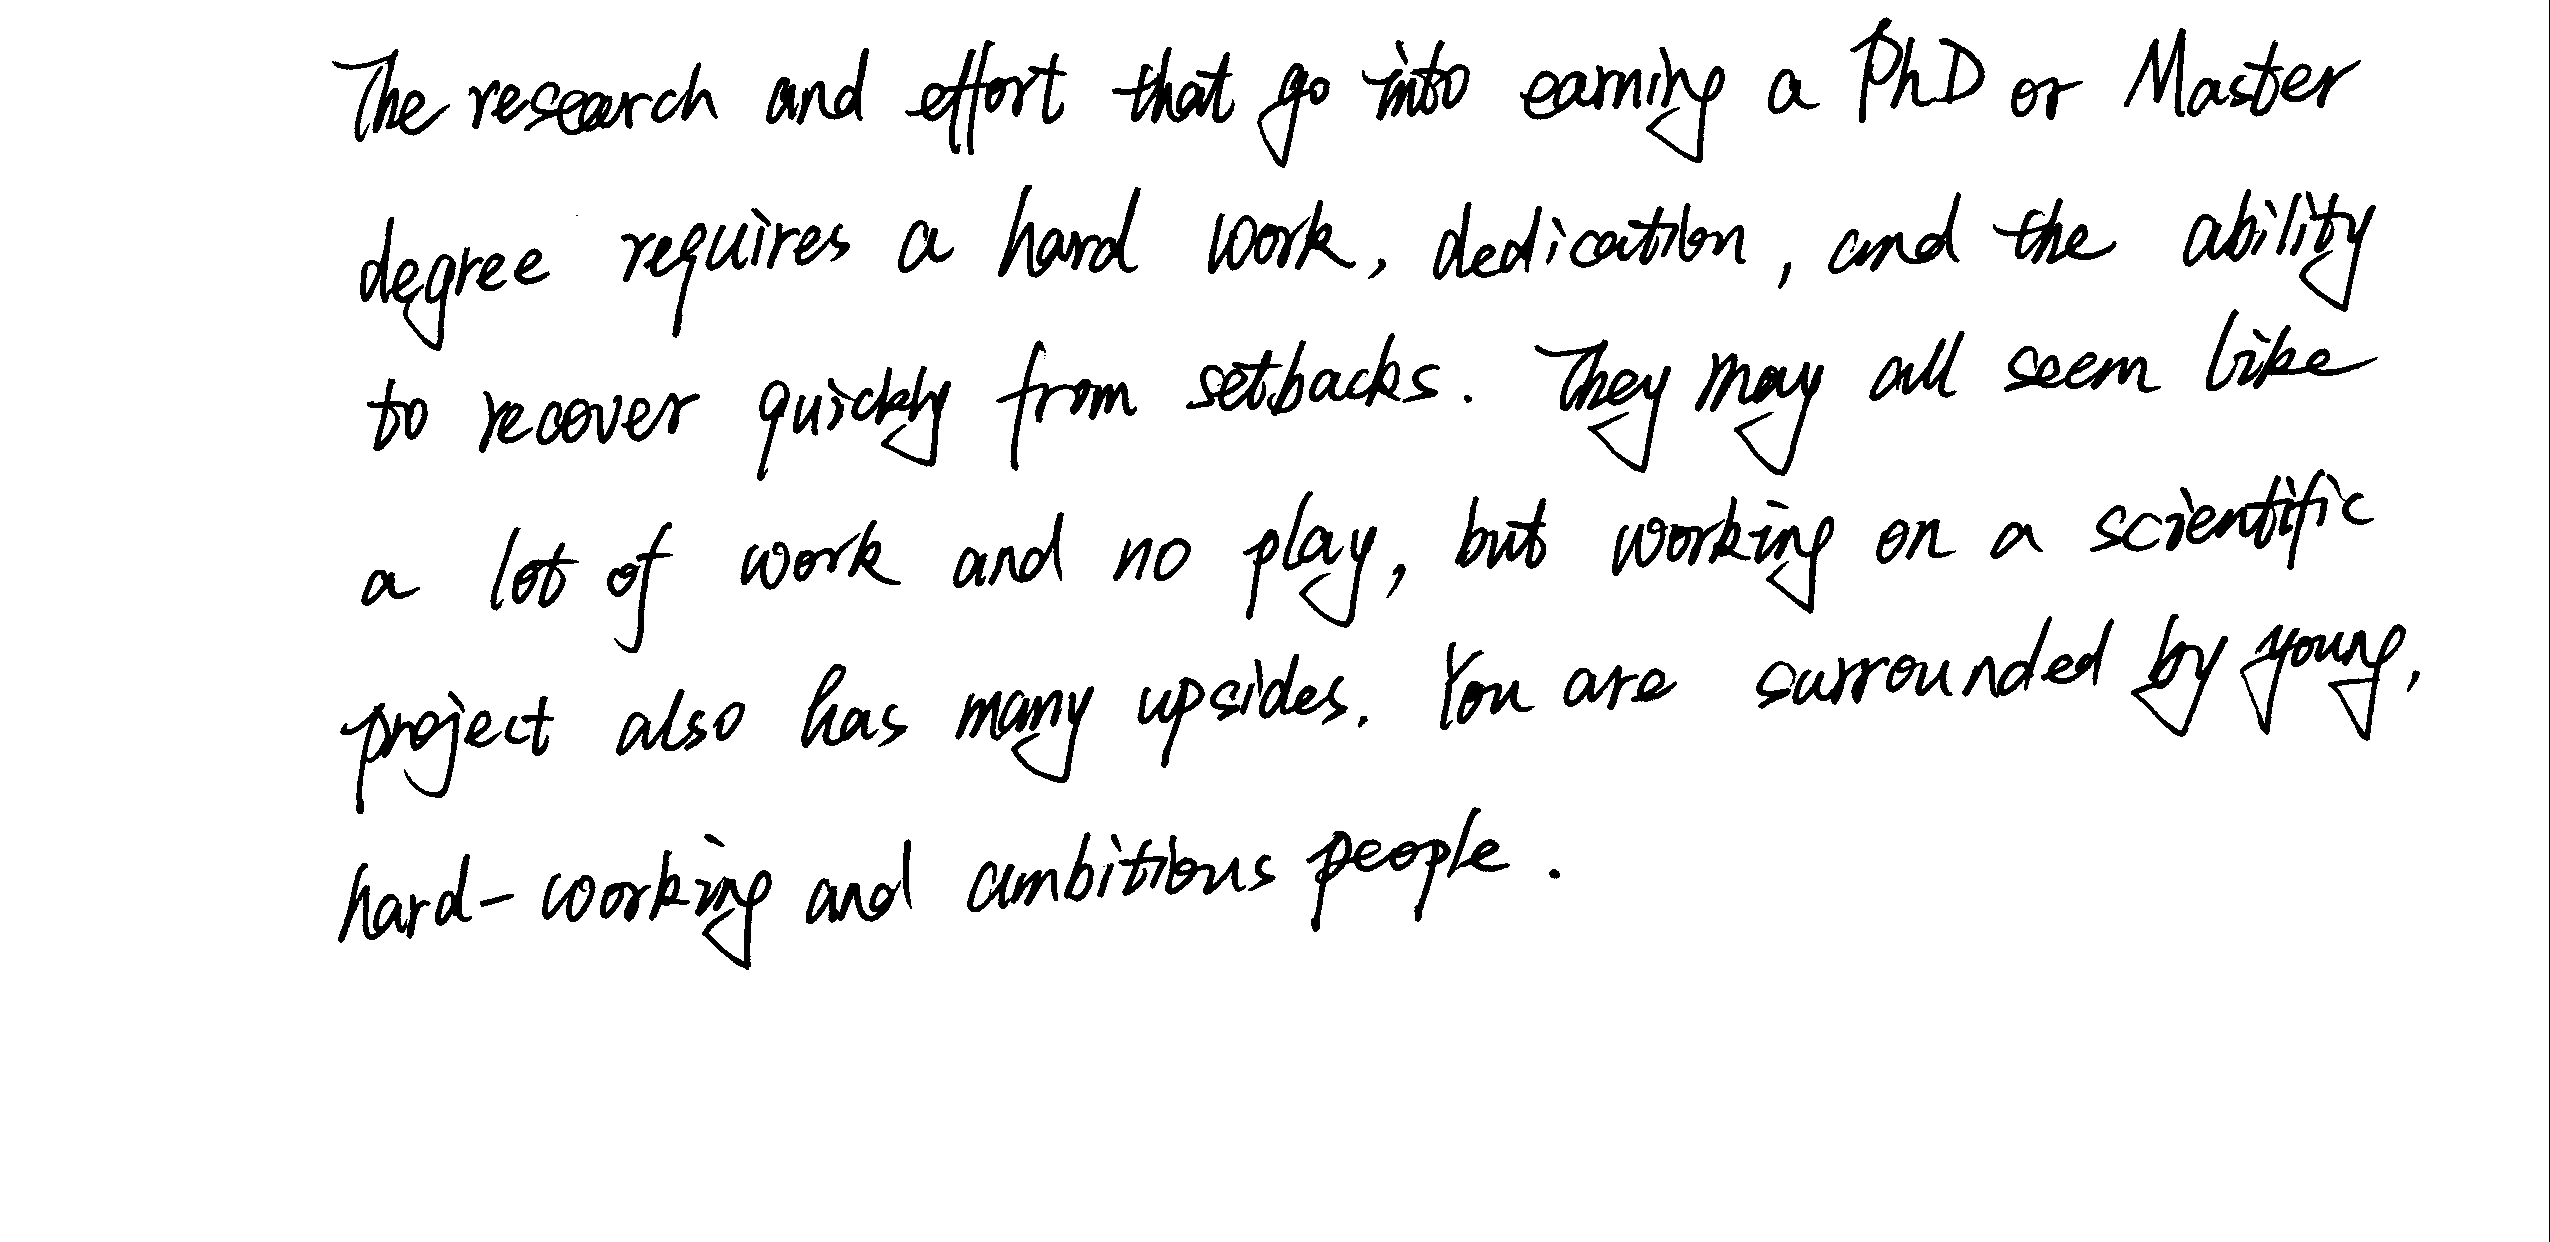 The research and effort that go into earning a PhD or Master
degree requires a hard work, dedication, and the ability
to recover quickly from setbacks. They may all seem like
a lot of work and no play, but working on a scientific
project also has many upsides. You are surrounded by young,
hard-working and ambitious people.